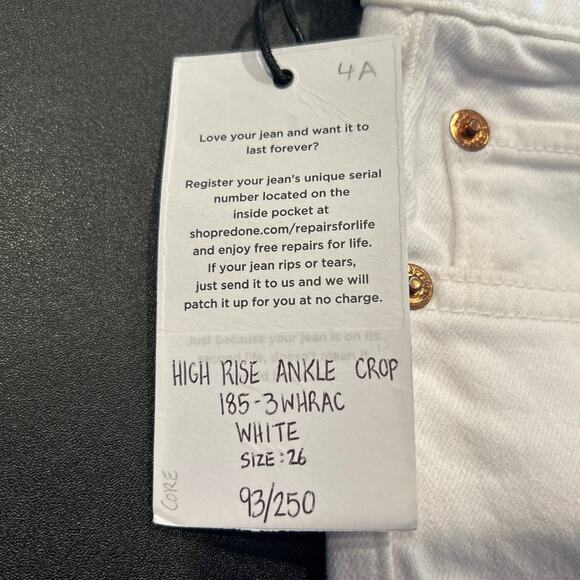 4A
Love your jean and want it to
last forever?
Register your jean's unique serial
number located on the
inside pocket at
shopredone.com/repairsforlife
and enjoy free repairs for life.
If your jean rips or tears,
just send it to us and we will
patch it up for you at no charge.
Just because your jean is on its
HIGH RISE ANKLE CROP
185-3WHRAC
WHITE
SIZE:26
CORE
93/250